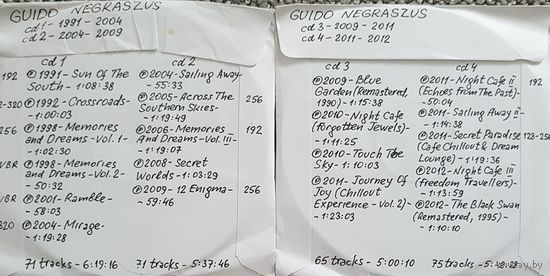 GUIDO NEGRASZUS
cd 1 - 1991 - 2004
cd 2 - 2004 - 2009
cd 1
192 ℗ 1991 - Sun Of The
South - 1:08:38
-320 ℗ 1992 - Crossroads -
1:00:03
256 ℗ 1998 - Memories
and Dreams - Vol. 1 -
1:02:30
VBR ℗ 1998 - Memories
and Dreams - Vol. 2 -
50:32
VBR ℗ 2001 - Ramble -
58:03
320 ℗ 2004 - Mirage -
1:19:28
71 tracks - 6:19:16
cd 2
℗ 2004 - Sailing Away -
55:33
℗ 2005 - Across The 256
Southern Skies -
1:19:49
℗ 2006 - Memories 192
And Dreams - Vol. III -
1:19:07
℗ 2008 - Secret
Worlds - 1:03:29
℗ 2009 - 12 Enigma - 256
59:46
71 tracks - 5:37:46
GUIDO NEGRASZUS
cd 3 - 2009 - 2011
cd 4 - 2011 - 2012
cd 3
℗ 2009 - Blue
Garden (Remastered,
1990) - 1:15:38
℗ 2010 - Night Cafe
(Forgotten Jewels) -
1:11:25
℗ 2010 - Touch The
Sky - 1:10:03
℗ 2011 - Journey Of
Joy (Chillout
Experience - Vol. 2) -
1:23:03
65 tracks - 5:00:10
cd 4
℗ 2011 - Night Cafe II 192
(Echoes From The Past) -
50:04
℗ 2011 - Sailing Away II -
1:14:38
℗ 2011 - Secret Paradise 128-256
(Cafe Chillout & Dream
Lounge) - 1:19:36
℗ 2012 - Night Cafe III 192
(Freedom Travellers) -
1:13:59
℗ 2012 - The Black Swan
(Remastered, 1995) -
1:10:10
75 tracks -